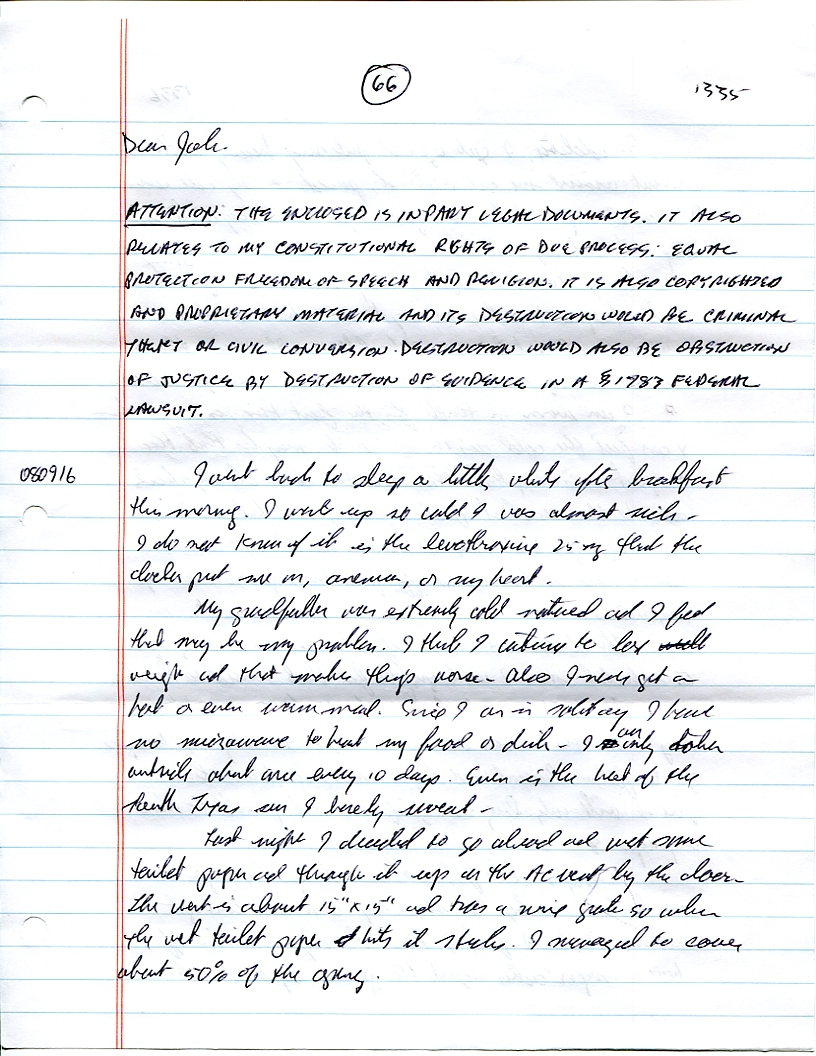 66
1335
Dear Jack.
ATTENTION: THE ENCLOSED IS IN PART LEGAL DOCUMENTS. IT ALSO
RELATES TO MY CONSTITUTIONAL RIGHTS OF DUE PROCESS: EQUAL
PROTECTION FREEDOM OF SPEECH AND RELIGION. IT IS ALSO COPYRIGHTED
AND PROPRIETARY MATERIAL AND ITS DESTRUCTION WOULD BE CRIMINAL
THEFT OR CIVIL CONVERSION. DESTRUCTION WOULD ALSO BE OBSTRUCTION
OF JUSTICE BY DESTRUCTION OF EVIDENCE IN A § 1983 FEDERAL
LAWSUIT.
080916
I went back to sleep a little while after breakfast
this morning. I woke up so cold I was almost sick -
I do not know if it is the levothroxine 25 mg that the
doctor put me on, anemia, or my heart.
My grandfather was extremely cold natured and I feel
that may be my problem. I think I continue to lose
weight and that makes things worse - Also I never get a
hot or even warm meal. Since I am in solitary I have
no microwave to heat my food or drink - I am only taken
outside about once every 10 days. Even in the heat of the
South Texas sun I barely sweat -
Last night I decided to go ahead and wet some
toilet paper and through it up on the AC vent by the door -
The vent is about 15" x 15" and has a wire grate so when
the wet toilet paper hits it sticks. I managed to cover
about 50% of the opening.